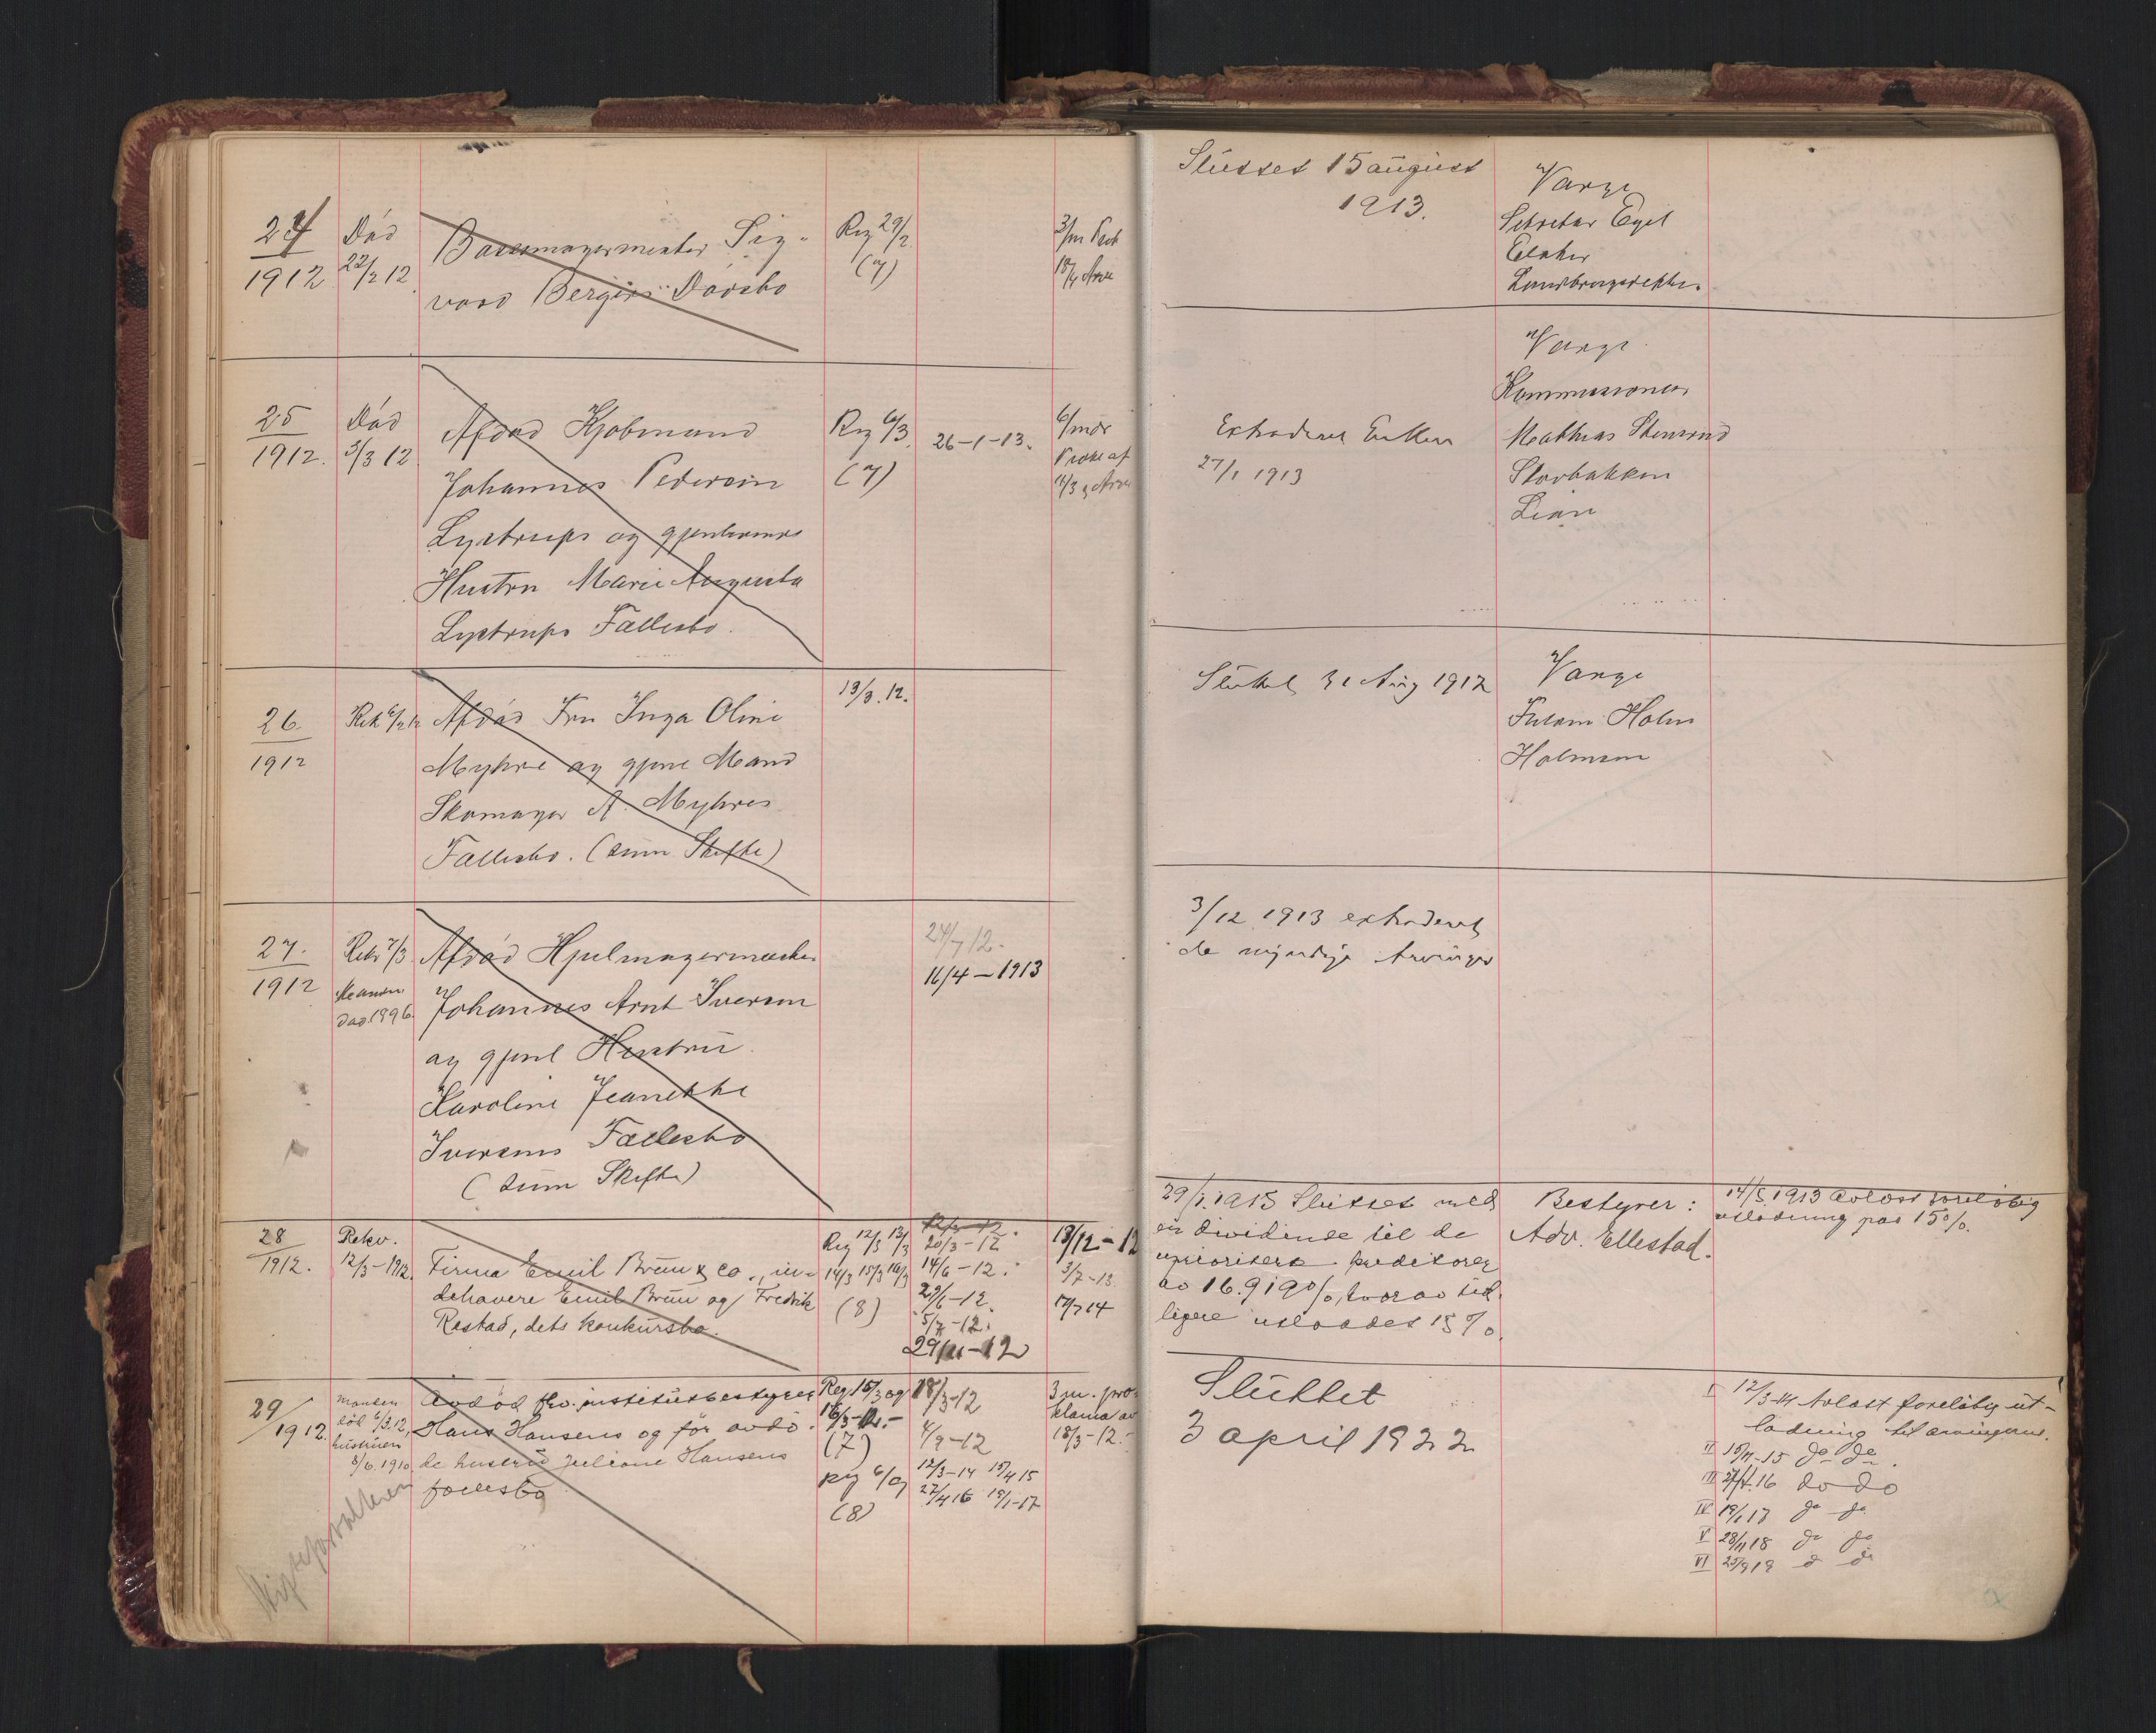 24
1912
Död
22/2 12
Bøssemagermester Sig-
vard Bergers Dødsbo
Reg 29/2
(7)
3/m Prok
18/4 Arve
Sluttet 15 august
1913.
Værge
Sekretær Egil
Elster
25
1912.
Død
3/3 12
Afdød Kjøbmand
Johannes Pedersen
Lystrups og gjenlevende
Hustru Marie Augusta
Lystrups Fællesbo.
Reg 6/3
(7)
26-1-13.
6/mdr
Extraderet Enken
27/1 1913
Værge
Kommissionær
Mathias
26.
1912
Afdød Fru Inga Oline
Myhre og gjenl Mand
Skomager A. Myhres
Fællesbo. (sum Skifte)
13/3.12.
Sluttet 31 Aug 1912
Værge
Holm
27.
1912
Rekv 7/3
Manden
død 1896.
Afdød Hjulmagermester
Johannes Arnt Iversen
og gjenl Hustru
Karoline Jeanette
Iversens Fællesbo
(sum Skifte)
24/7 12.
16/4-1913
3/12 1913 extraderet
de myndige Arvinger
28
1912.
Rekv.
12/3-1912.
Firma Emil Bruun & Co., in-
dehavere Emil Bruun og Fredrik
Restad, dets konkursbo.
Reg 12/3 13/3
14/3 15/3 16/3
(8)
20/3-12
14/6-12.
5/7-12.
29/11-12
18/12-12
3/7-13
29/1.1915 Sluttet med
en dividende til de
uprioriterte kreditorer
av 16.9190/0, hvorav tid-
ligere utloddet 15 %.
Bestyrer:
Adv. Ellestad.
14/5 1913 avlæst foreløbig
utlodning paa 15%.
29/
1912.
manden
død 6/3.12,
hustruen
8/6.1910
Skifteforvalteren
Avdød fhv. institutbestyrer
Hans Hansens og før avdø-
de hustru Juliane Hansens
fællesbo
Reg 15/3 og
16/3-12.-
(7)
Reg 6/9
(8)
18/3-12
4/9-12
12/3-14 15/4 15
27/4 16 19/1-17
3 m. pro-
klama av
18/3-12.-
Sluttet
3 april 1922
I 12/3-14 Avlæst foreløbig ut-
lodning til arvingerne.
II 15/4-15 do do.
III 27/4.16 do do
IV 19/1 17 do do
V 28/11 18 do do
VI 25/9 19 do do